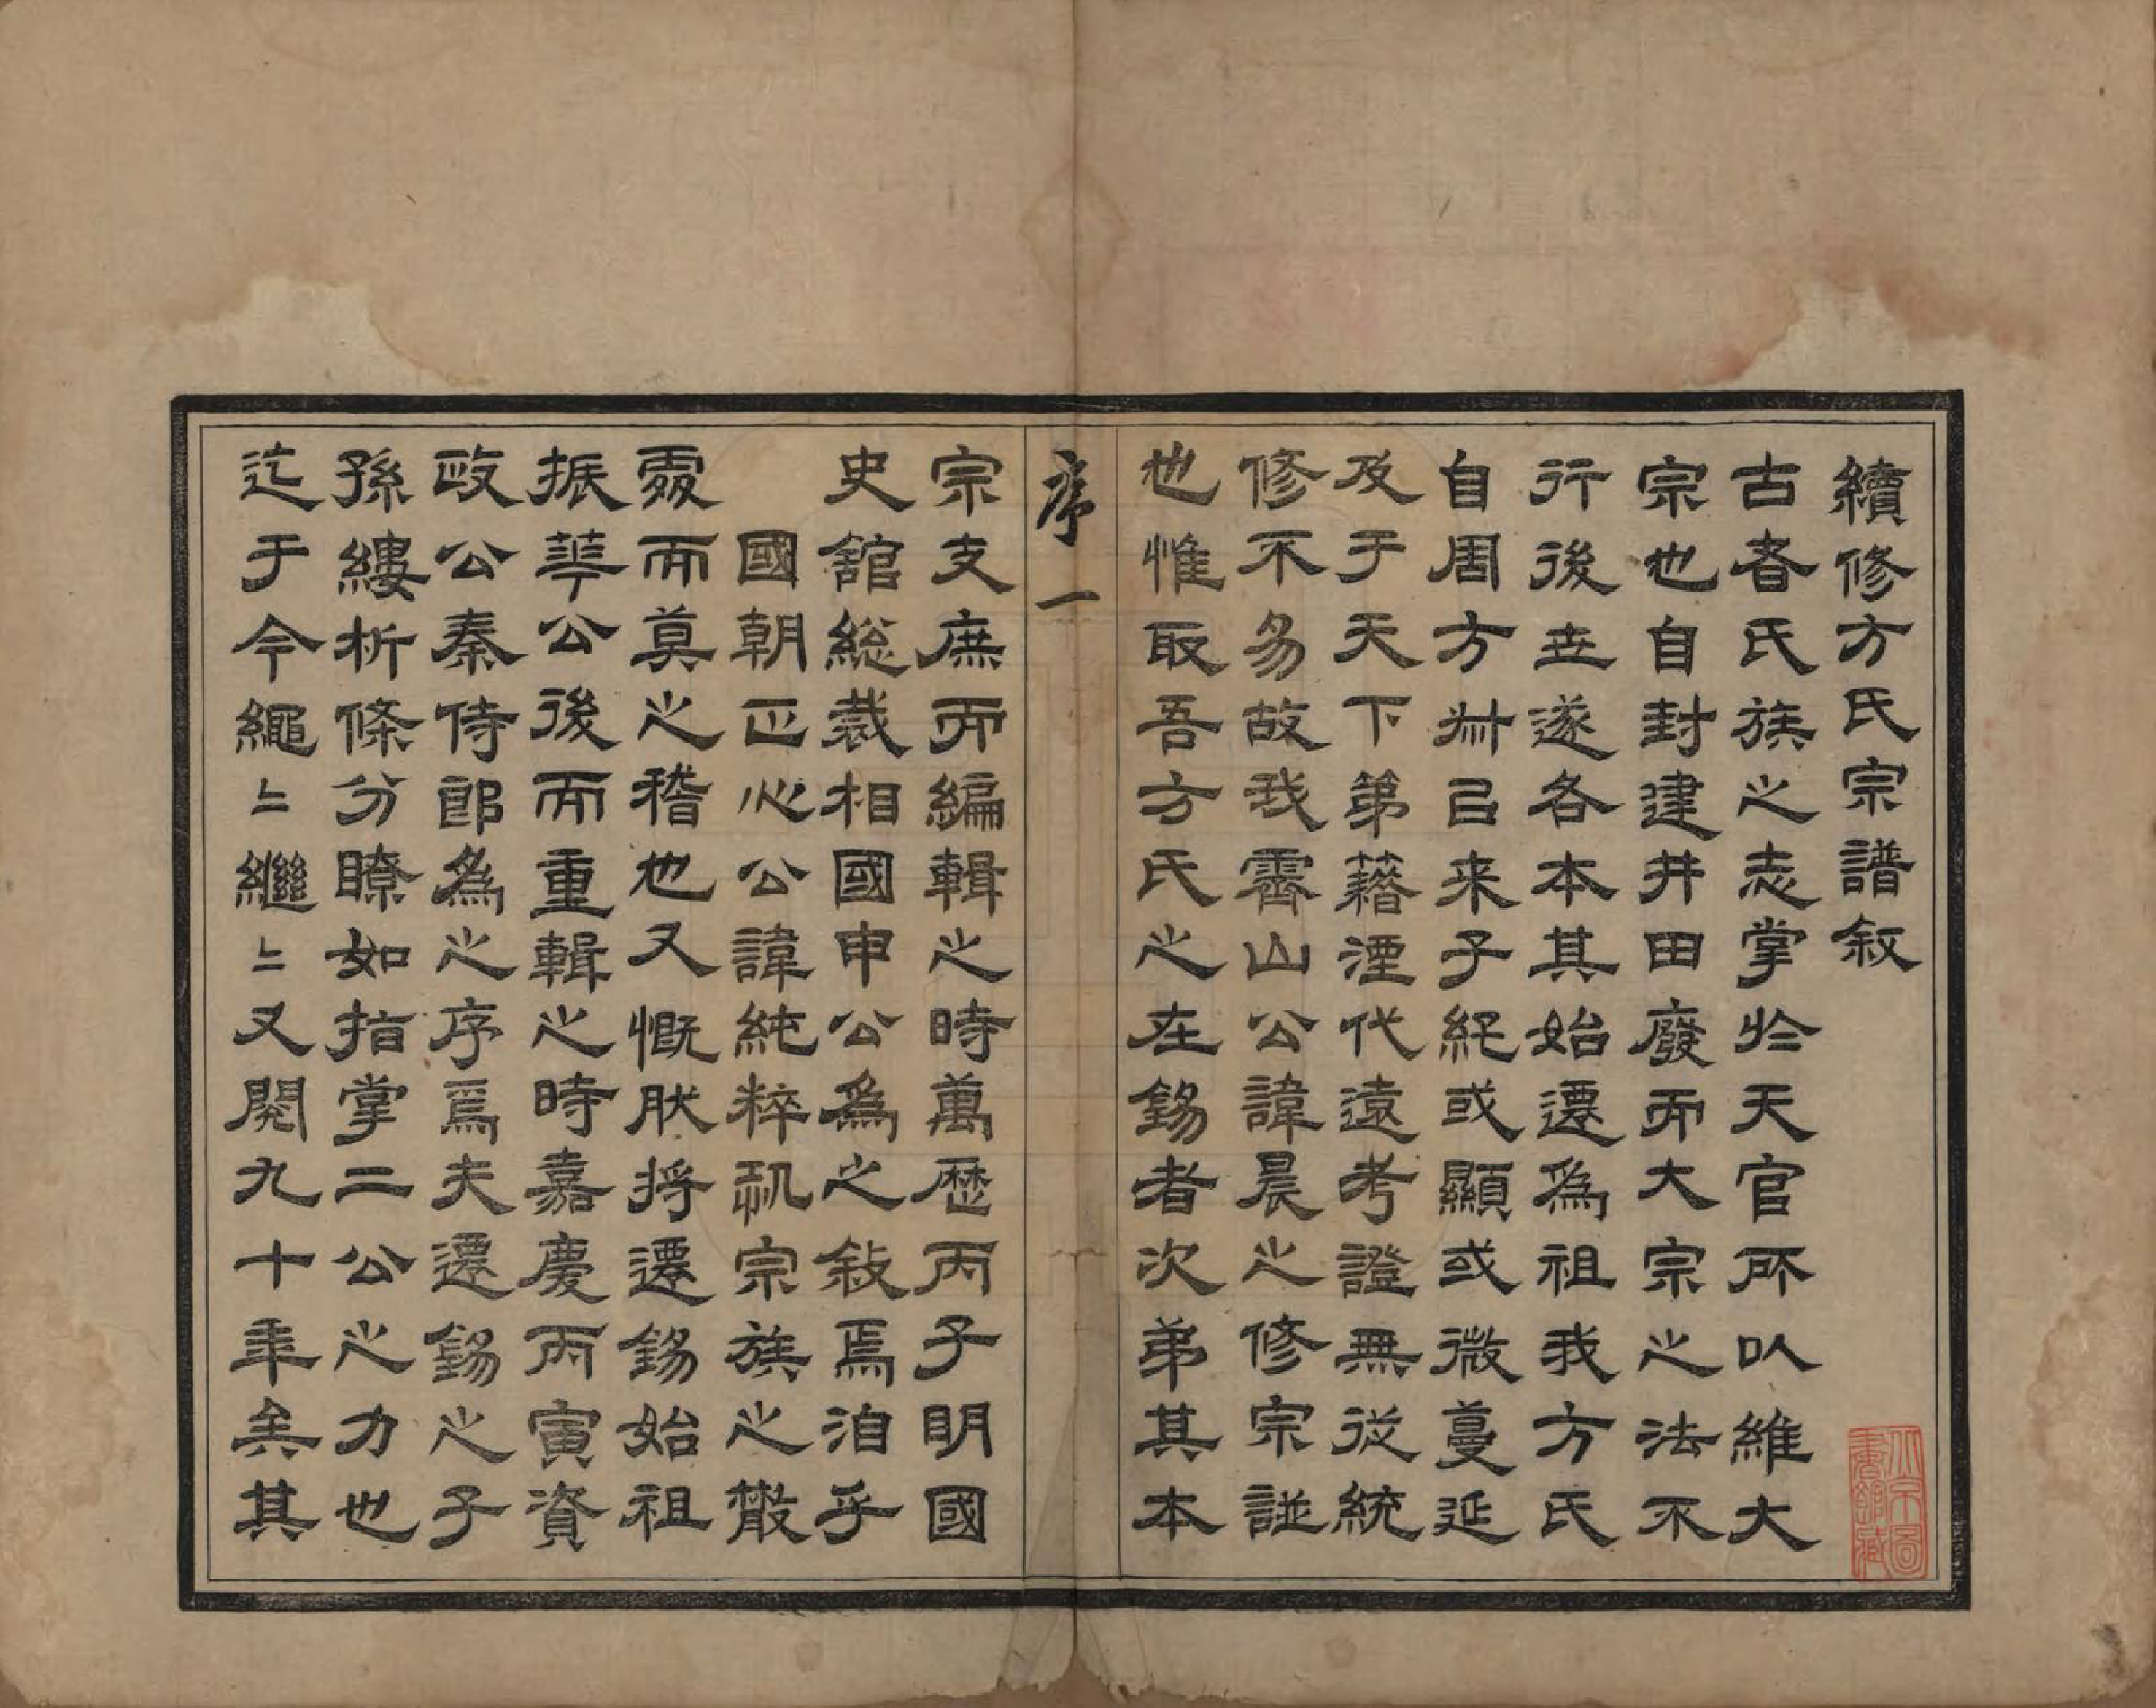 續修方氏宗譜敘
古者氏族之志掌於天官所以維大
宗也自封建井田廢而大宗之法不
行後世遂各本其始遷為祖我方氏
自周方叔以来子綂或顯或微蔓延
及于天下第籍湮代遠考證無從統
修不易故我霽山公諱晨之修宗譜
也惟取吾方氏之在錫者次第其本
序一
宗支庶而編輯之時萬歷丙子明國
史舘総裁相國申公為之敍焉洎乎
國朝正心公諱純粹飛宗族之散
處而莫之稽也又慨肰將遷錫始祖
振華公後而重輯之時嘉慶丙寅資
政公秦侍郎為之序焉夫遷錫之子
孫縷析條分瞭如指掌二公之力也
迄于今繩〻繼〻又閱九十年矣其
北京圖書館藏